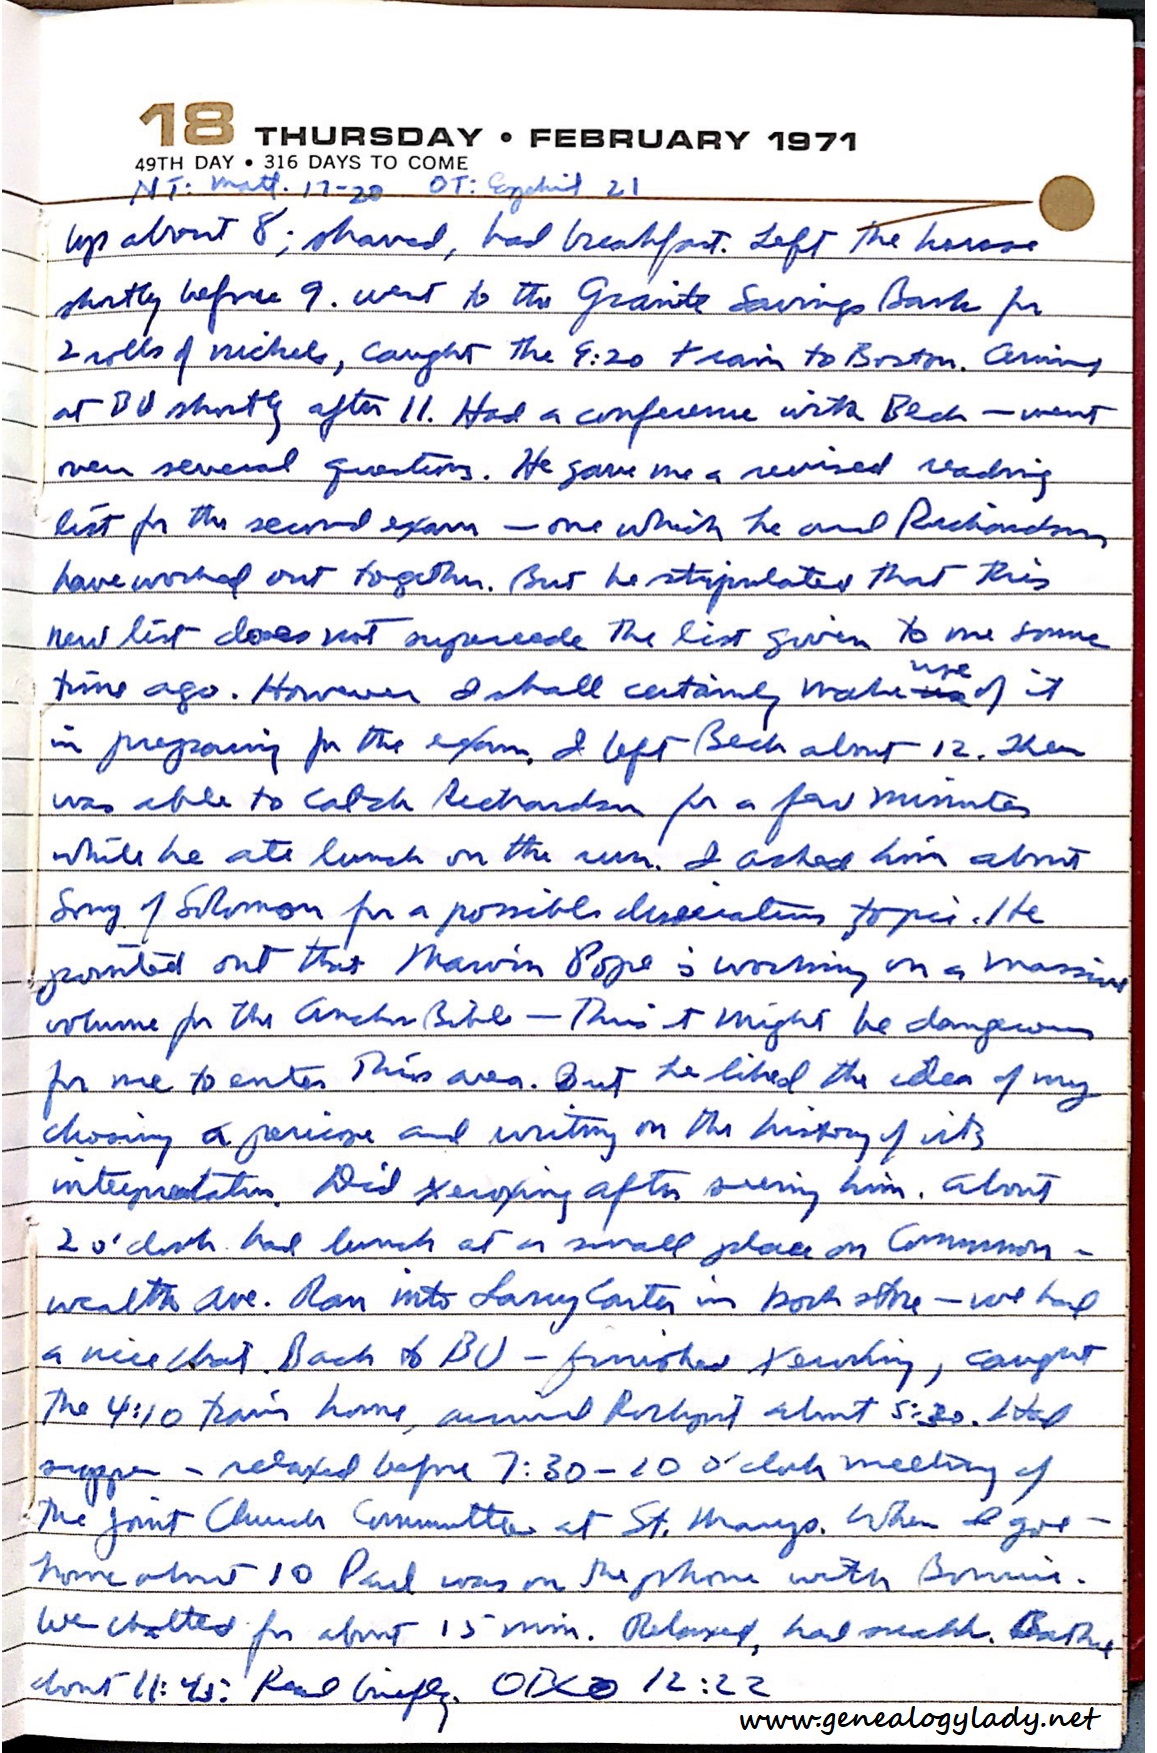 18 THURSDAY • FEBRUARY 1971
49TH DAY • 316 DAYS TO COME
NT: Matt. 17-20 OT: Ezekiel 21
Up about 8; shaved, had breakfast. Left the house
shortly before 9. went to the Granite Savings Bank for
2 rolls of nickels, caught the 9:20 train to Boston. Arrived
at BU shortly after 11. Had a conference with Beck — went
over several questions. He gave me a revised reading
list for the second exam — one which he and Richardson
have worked out together. But he stipulated that this
new list does not supercede the list given to me some
time ago. However I shall certainly make use of it
in preparing for the exam. I left Beck about 12. Then
was able to catch Richardson for a few minutes
while he ate lunch on the run. I asked him about
Song of Solomon for a possible dissertation topic. He
pointed out that Marvin Pope is working on a massive
volume for the Anchor Bible — Thus it might be dangerous
for me to enter this area. But he liked the idea of my
chosing a pericope and writing on the history of its
interpretation. Did xeroxing after seeing him. About
2 o'clock had lunch at a small place on Common-
wealth Ave. Ran into Larry Carter in book store — we had
a nice chat. Back to BU — finished xeroxing, caught
the 4:10 train home, arrived Rockport about 5:30. Had
supper — relaxed before 7:30-10 o'clock meeting of
the Joint Church Committee at St. Marys. When I got
home about 10 Paul was on the phone with Bonnie.
We chatted for about 15 min. Relaxed, had snack. Bathed
about 11:45. Read briefly. 12:22
www.genealogylady.net